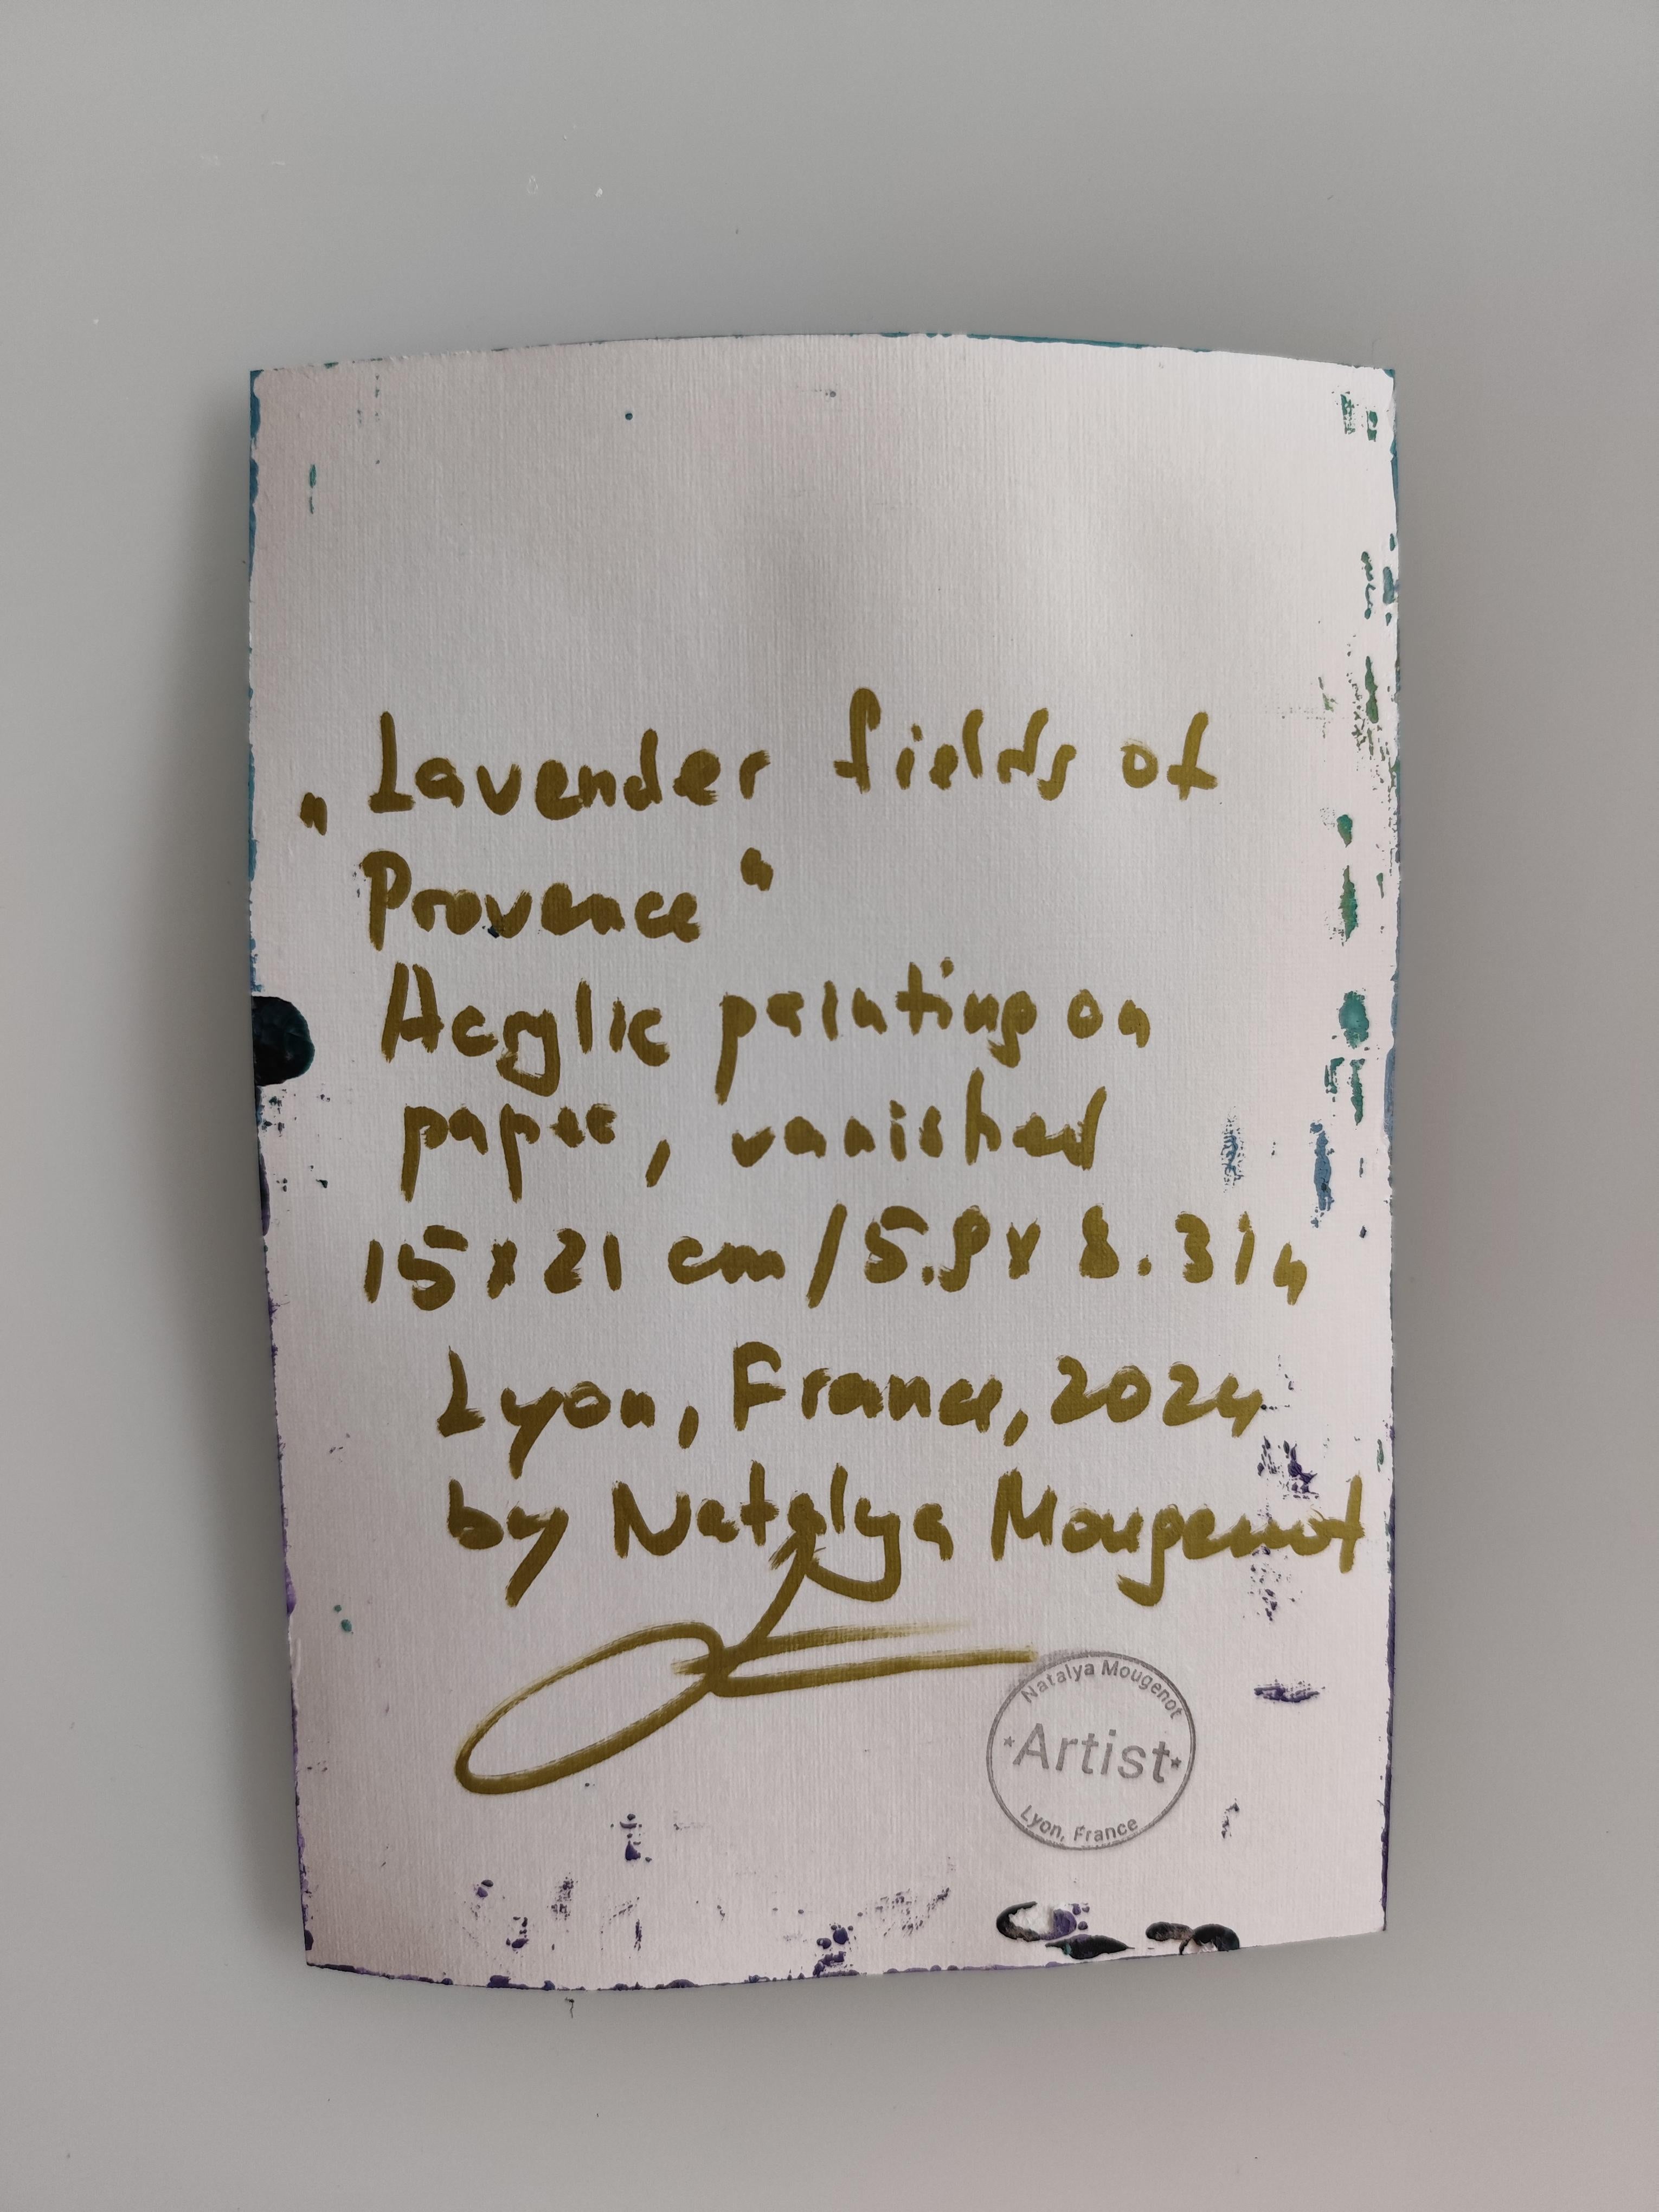 „Lavender fields of
Provence“
Acrylic painting on
paper, vanished
15x21 cm/5.9x8.3in
Lyon, France, 2024
by Natalya Mougenot
Natalya Mougenot
*Artist*
Lyon, France